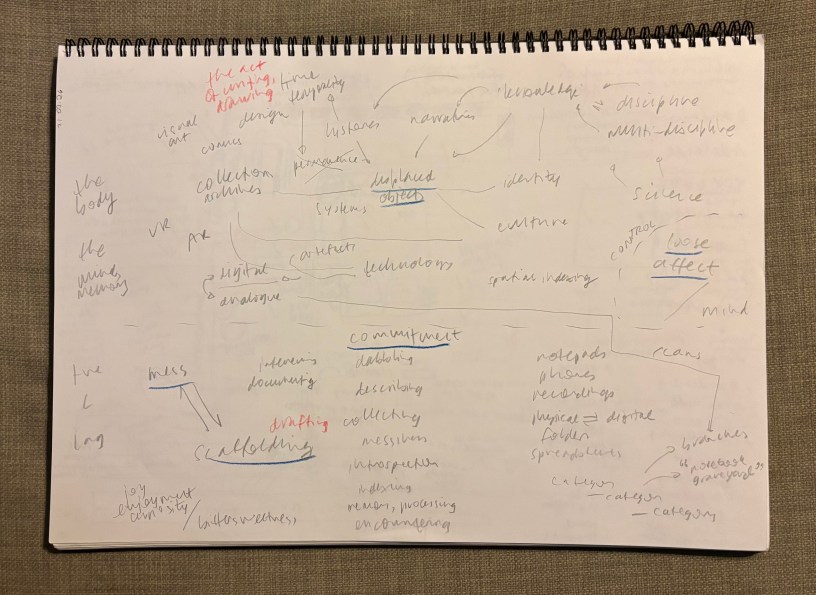 the act
of writing,
drawing
time
temporality
visual
art
comics
design
histories
narratives
knowledge
discipline
multi-discipline
permanence
the
body
collection
archives
displaced
object
identity
science
systems
culture
VR
AR
the
mind,
memory
artefacts
digital
technology
analogue
spatial indexing
CONTROL
loose
affect
mind
commitment
the
L
mess
dabbling
documenting
notepads
scans
phones
describing
recordings
log
drafting
collecting
physical ⇌ digital
scaffolding
messiness
folders
branches
introspection
spreadsheets
"notebook
graveyard"
category
– category
– category
joy
enjoyment
curiosity
/ bittersweetness
indexing
memory, processing
encountering